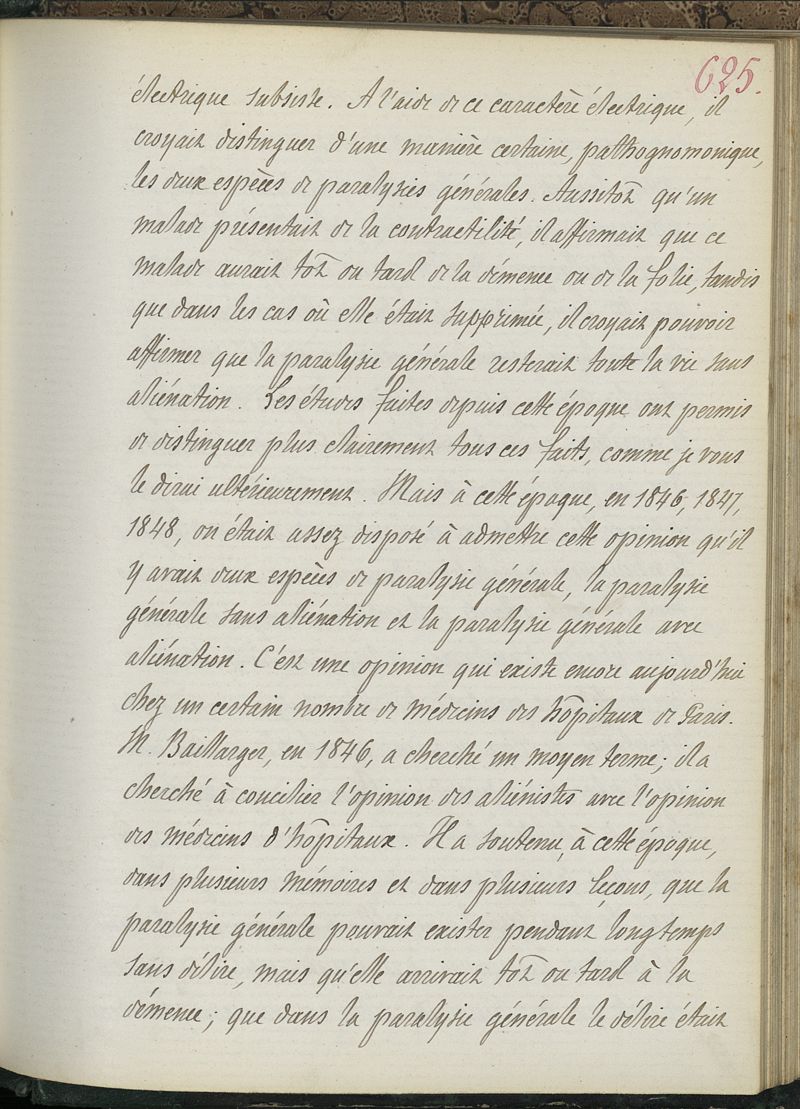 625.
électrique subsiste. A l'aide de ce caractère électrique, il
croyait distinguer d'une manière certaine, pathognomonique,
les deux espèces de paralysies générales. Aussitôt qu'un
malade présentait de la contractilité, il affirmait que ce
malade aurait tôt ou tard de la démence ou de la folie, tandis
que dans les cas où elle était supprimée, il croyait pouvoir
affirmer que la paralysie générale resterait toute la vie sans
aliénation. Les études faites depuis cette époque ont permis
de distinguer plus clairement tous ces faits, comme je vous
le dirai ultérieurement. Mais à cette époque, en 1846, 1847,
1848, on était assez disposé à admettre cette opinion qu'il
y avait deux espèces de paralysie générale, la paralysie
générale sans aliénation et la paralysie générale avec
aliénation. C'est une opinion qui existe encore aujourd'hui
chez un certain nombre de médecins des hôpitaux de Paris.
M. Baillarger, en 1846, a cherché un moyen terme; il a
cherché à concilier l'opinion des aliénistes avec l'opinion
des médecins d'hôpitaux. Il a soutenu, à cette époque,
dans plusieurs mémoires et dans plusieurs leçons, que la
paralysie générale pouvait exister pendant longtemps
sans délire, mais qu'elle arrivait tôt ou tard à la
démence; que dans la paralysie générale le délire était